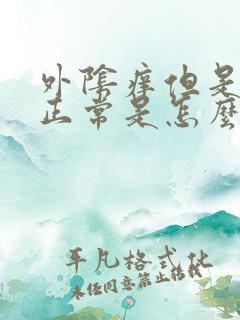 外陰痒但是
正常是怎麽
平凡格式化
未经同意禁止搭载